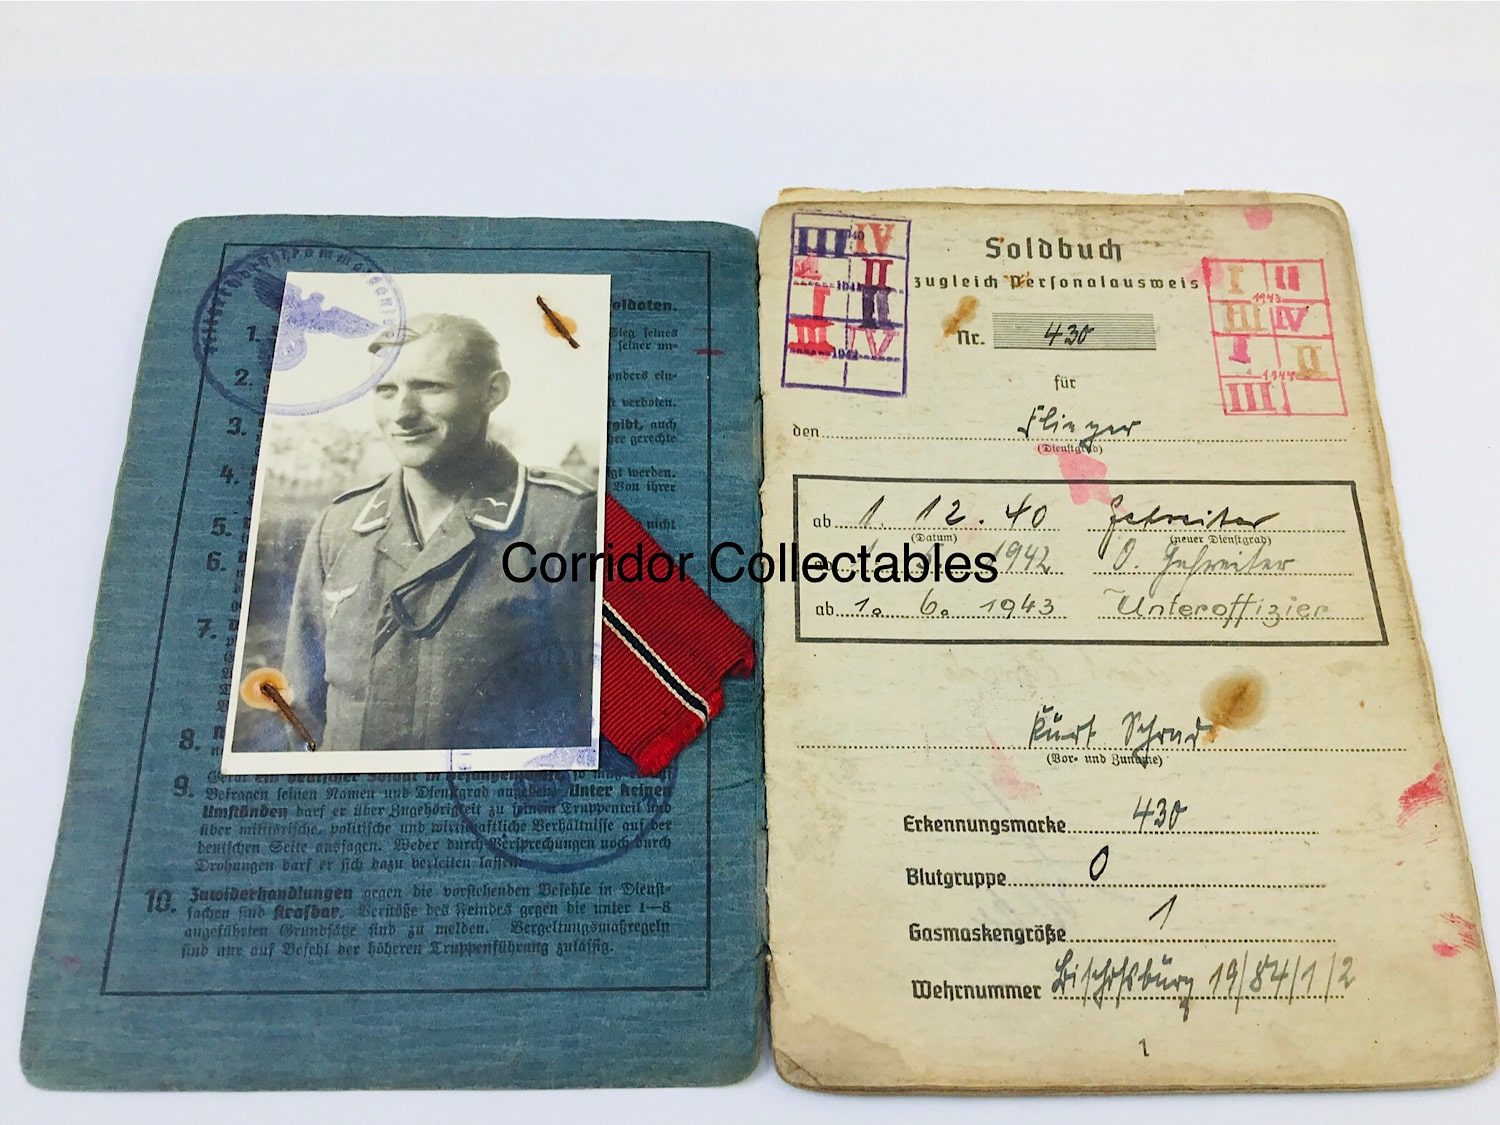 oldaten.
1.
Sieg seines
seiner un-
2.
onders ein-
t verboten.
3.
rgibt, auch
hre gerechte
4.
gt werden.
Von ihrer
5.
nicht
6.
7.
8.
9.
Befragen seinen Namen und Dienstgrad angeben. Unter keinen
Umständen darf er über Zugehörigkeit zu seinem Truppenteil und
über militärische, politische und wirtschaftliche Verhältnisse auf der
deutschen Seite aussagen. Weder durch Versprechungen noch durch
Drohungen darf er sich dazu verleiten lassen.
10. Zuwiderhandlungen gegen die vorstehenden Befehle in Dienst-
sachen sind strafbar. Verstöße des Feindes gegen die unter 1—8
angeführten Grundsätze sind zu melden. Vergeltungsmaßregeln
sind nur auf Befehl der höheren Truppenführung zulässig.
Corridor Collectables
III IV
II
I II
III IV
1942
Soldbuch
zugleich Personalausweis
Nr. 430
für
I II
1943
III IV
I II
1944
III
den Flieger
(Dienstgrad)
ab 1. 12. 40 Gefreiter
(Datum) (neuer Dienstgrad)
1942 O. Gefreiter
ab 1. 6. 1943 Unteroffizier
Kurt Schrad
(Vor- und Zuname)
Erkennungsmarke 430
Blutgruppe 0
Gasmaskengröße 1
Wehrnummer Bischofsburg 19/84/1/2
1